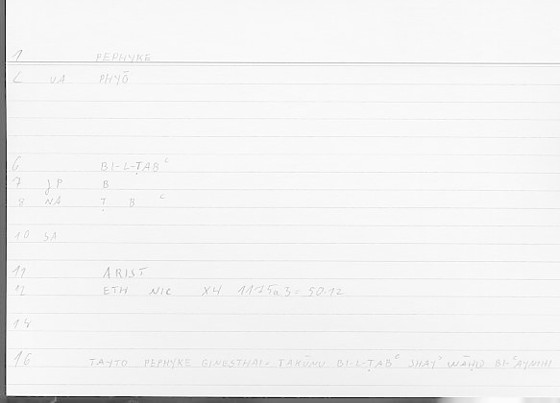 1 PEPHYKE
2 VA PHYŌ
6 BI-L-ṬABᶜ
7 JP B
8 NA Ṭ B ᶜ
10 SA
11 ARIST
12 ETH NIC X4 1175a3 = 50.12
14
16 TAYTO PEPHYKE GINESTHAI = TAKŪNU BI-L-ṬABᶜ SHAYʾ WĀḤID BI-ᶜAYNIHI